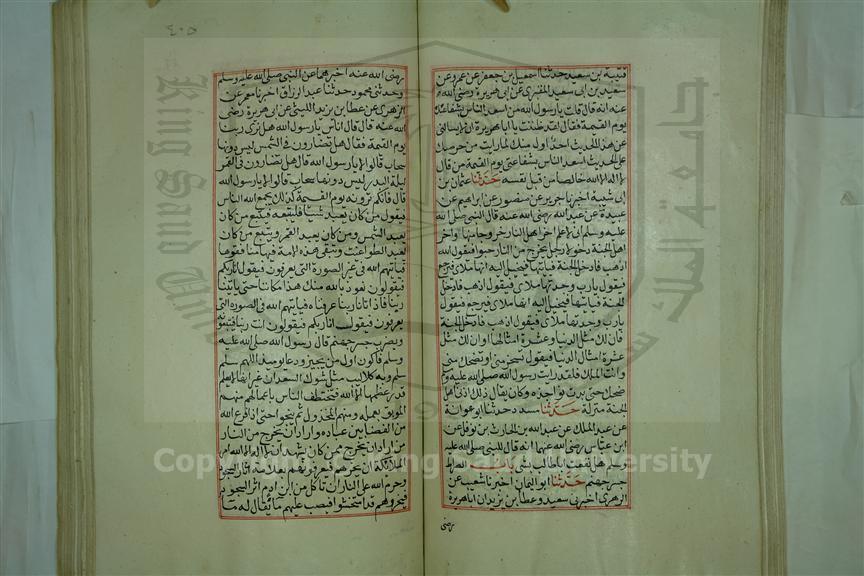 قتيبة بن سعيد حدثنا اسمعيل بن جعفر عن عمرو عن
سعيد بن ابى سعيد المقبرى عن ابى هريرة رضى الله
عنه انه قال قلت يا رسول الله من اسعد الناس بشفاعتك
يوم القيمة فقال لقد ظننت يا ابا هريرة ان لا يسالنى
عن هذا الحديث احد اول منك لما رايت من حرصك
على الحديث اسعد الناس بشفاعتى يوم القيمة من قال
لا اله الا الله خالصا من قبل نفسه حدثنا عثمان بن
ابى شيبة اخبرنا جرير عن منصور عن ابراهيم عن
عبيدة عن عبد الله رضى الله عنه قال النبى صلى الله
عليه وسلم انى لاعلم اخر اهل النار خروجا منها واخر
اهل الجنة دخولا رجل يخرج من النار حبوا فيقول الله
اذهب فادخل الجنة فياتيها فيخيل اليه انها ملاى فيرجع
فيقول يا رب وجدتها ملاى فيقول اذهب فادخل
الجنة فياتيها فيخيل اليه انها ملاى فيرجع فيقول
يا رب وجدتها ملاى فيقول اذهب فادخل الجنة
فان لك مثل الدنيا وعشرة امثالها او ان لك مثل
عشرة امثال الدنيا فيقول تسخر منى او تضحك منى
وانت الملك فلقد رايت رسول الله صلى الله عليه وسلم
ضحك حتى بدت نواجذه وكان يقال ذلك ادنى اهل
الجنة منزلة حدثنا مسدد حدثنا ابو عوانة
عن عبد الملك عن عبد الله بن الحارث بن نوفل عن
ابن عباس رضى الله عنهما انه قال للنبى صلى الله عليه
وسلم هل نفعت ابا طالب بشى باب الصراط
جسر جهنم حدثنا ابو اليمان اخبرنا شعيب عن
الزهرى اخبرنى سعيد وعطا بن يزيد ان ابا هريرة
رضى
٤٠٥
رضى الله عنه اخبرهما عن النبى صلى الله عليه وسلم
وحدثنى محمود حدثنا عبد الرزاق اخبرنا معمر عن
الزهرى عن عطا بن يزيد الليثى عن ابى هريرة رضى
الله عنه قال قال اناس يا رسول الله هل نرى ربنا
يوم القيمة فقال هل تضارون فى الشمس ليس دونها
سحاب قالوا لا يا رسول الله قال هل تضارون فى القمر
ليلة البدر ليس دونها سحاب قالوا لا يا رسول الله
قال فانكم ترونه يوم القيمة كذلك يجمع الله الناس
فيقول من كان يعبد شيئا فليتبعه فيتبع من كان
يعبد الشمس ومن كان يعبد القمر ويتبع من كان
يعبد الطواغيت وتبقى هذه الامة فيها منافقوها
فياتيهم الله فى غير الصورة التى يعرفون فيقول انا ربكم
فيقولون نعوذ بالله منك هذا مكاننا حتى ياتينا
ربنا فاذا اتانا ربنا عرفناه فياتيهم الله فى الصورة التى
يعرفون فيقول انا ربكم فيقولون انت ربنا فيتبعونه
ويضرب جسر جهنم قال رسول الله صلى الله عليه
وسلم فاكون اول من يجيز ودعا الرسل يومئذ اللهم سلم
سلم وبه كلاليب مثل شوك السعدان غير انها لا يعلم
قدر عظمها الا الله فتخطف الناس باعمالهم منهم
الموبق بعمله ومنهم المخردل ثم ينجو حتى اذا فرغ الله
من القضا بين عباده واراد ان يخرج من النار
من اراد ان يخرج ممن كان يشهد ان لا اله الا الله امر
الملائكة ان يخرجوهم فيعرفونهم بعلامة اثار السجود
وحرم الله على النار ان تاكل من ابن ادم اثر السجود
فيخرجونهم قد امتحشوا فيصب عليهم ما يقال له ما
Copyright © King Saud University
King Saud University
جامعة الملك